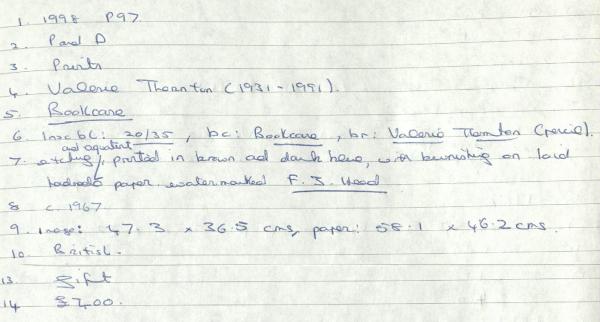 1. 1998 P97.
2. Pand D
3. Prints
4. Valerie Thornton (1931-1991).
5. Bookcare
6. Insc bl: 20/35, bc: Bookcare, br: Valerie Thornton (pencil).
ad aquatint
7. etching, printed in brown ad dark, with burnishing on laid
paper watermarked F. J. Head
8 c. 1967
9. image: 47.3 x 36.5 cms, paper: 58.1 x 46.2 cms.
10. British.
13. Gift
14 £200.